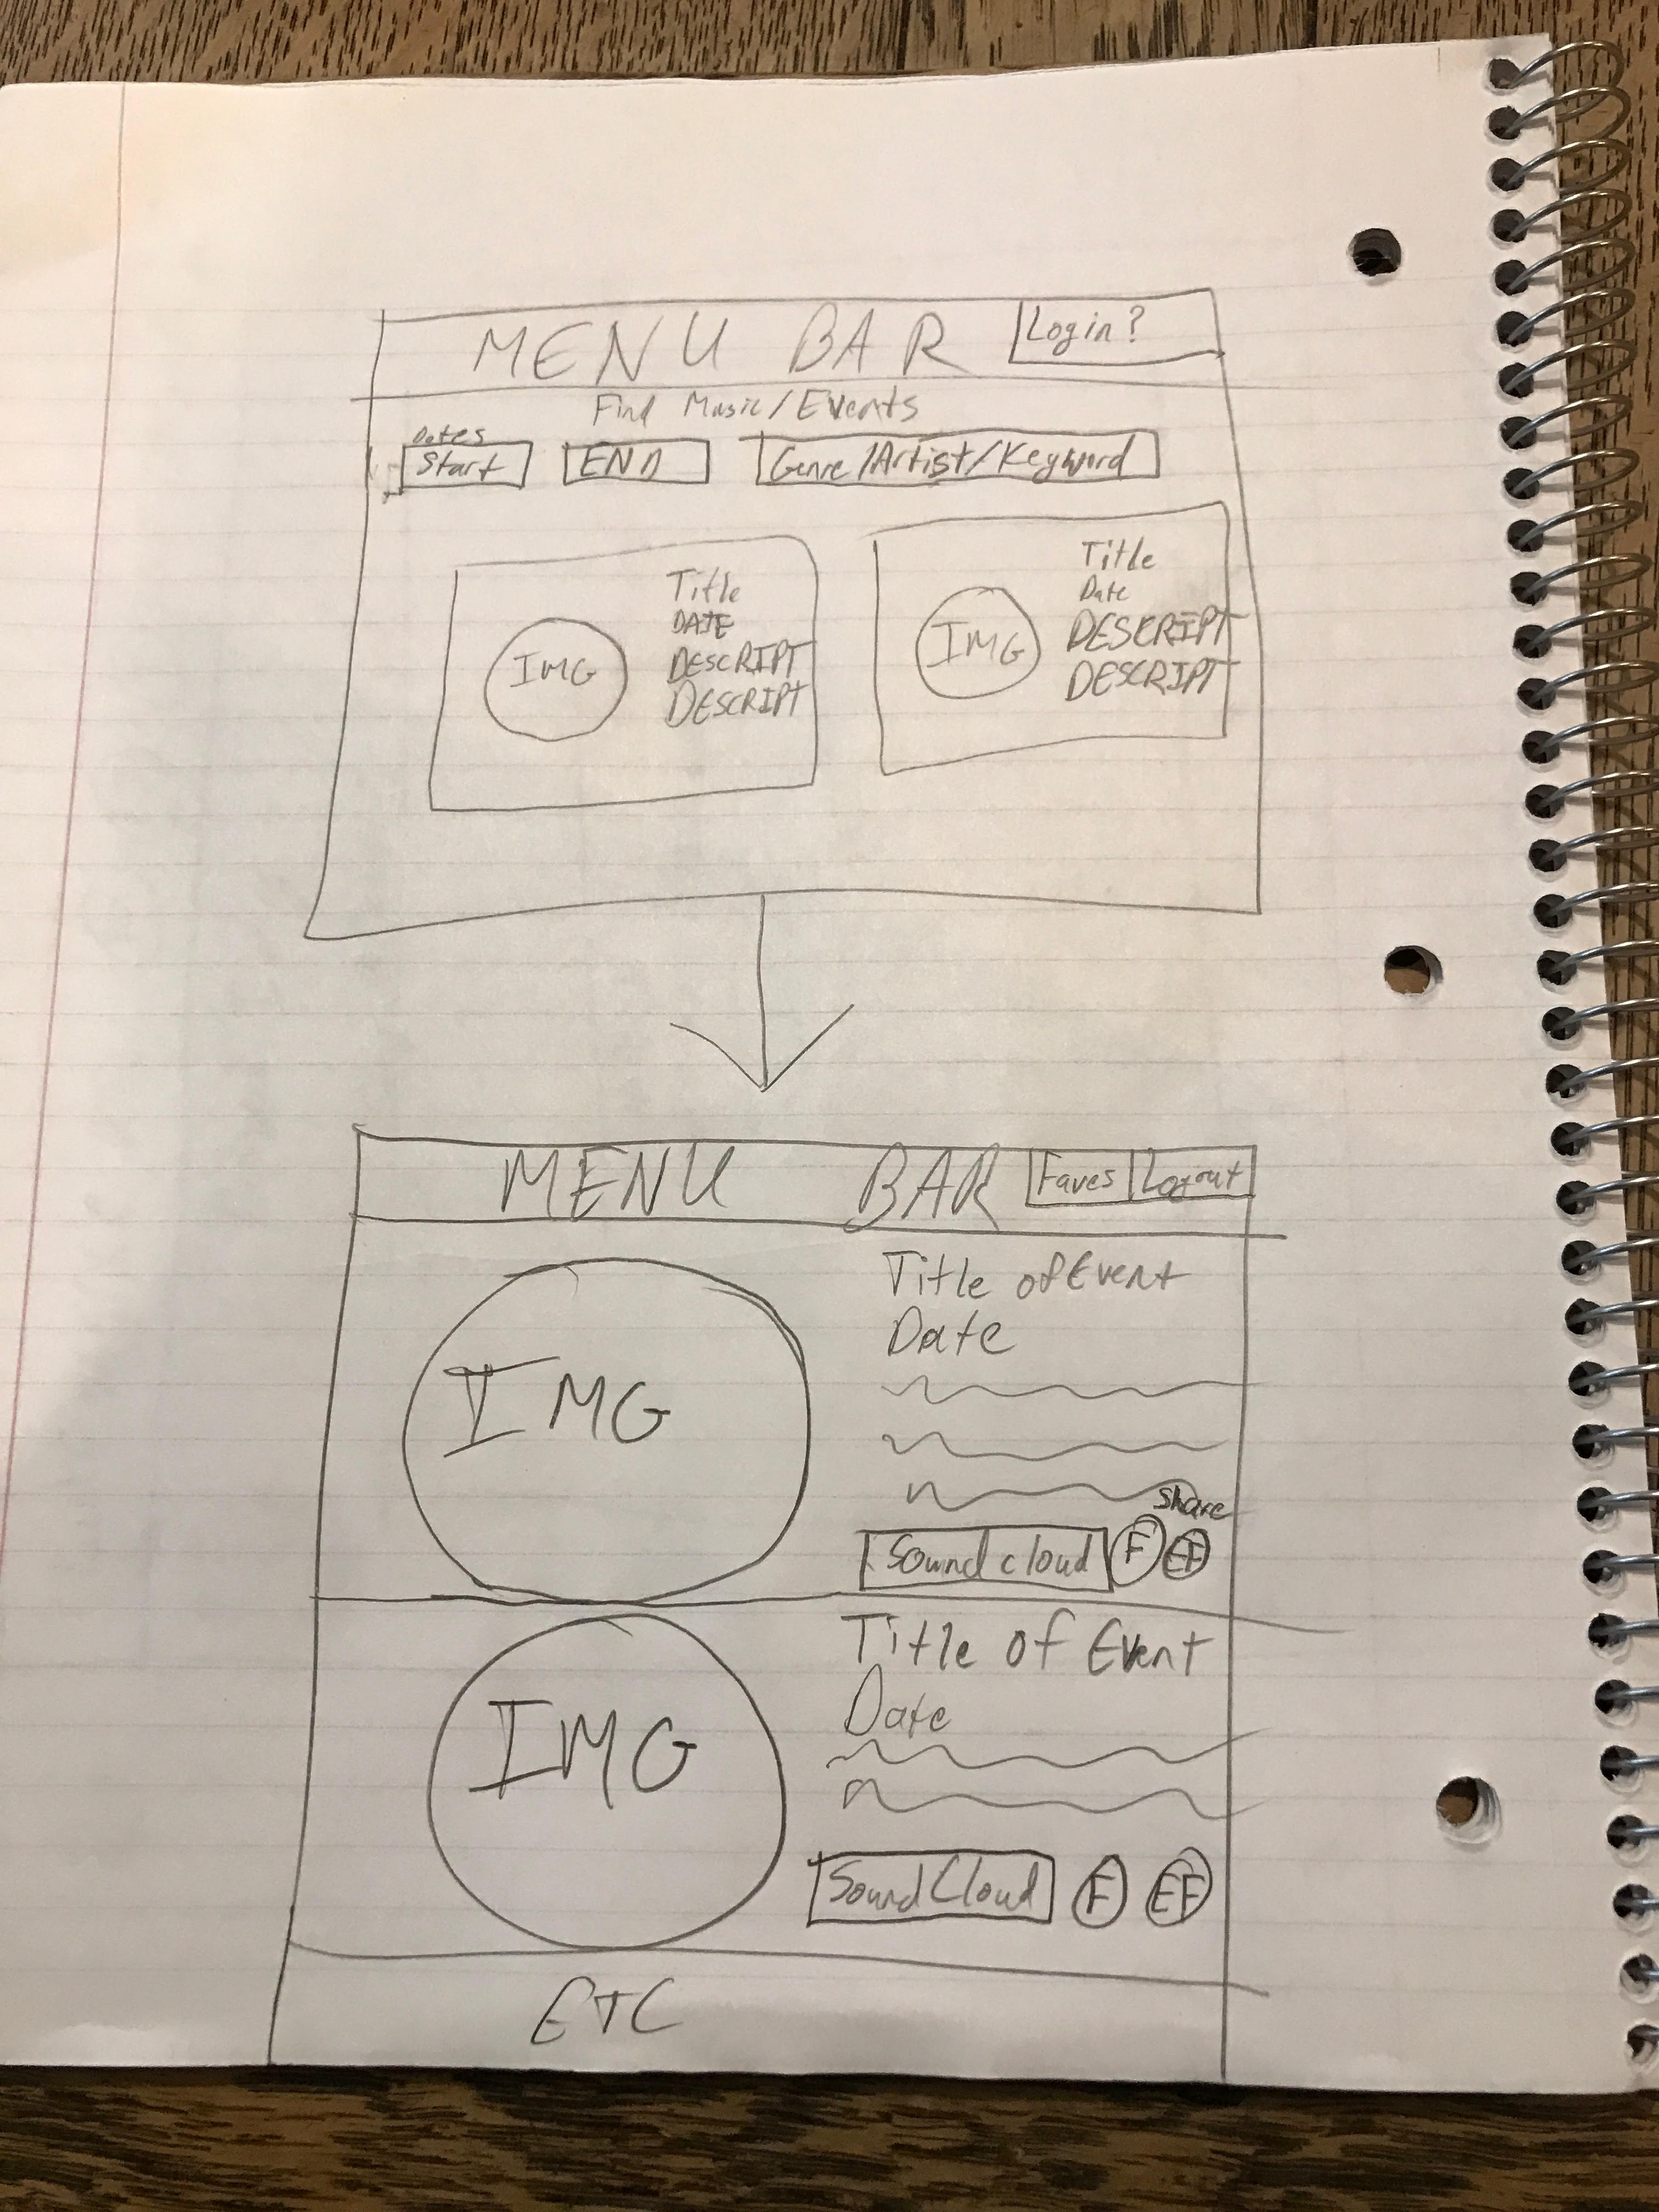 MENU BAR Login?
Find Music/Events
Dates
Start END Genre/Artist/Keyword
Title
DATE
IMG DESCRIPT
DESCRIPT
Title
Date
IMG DESCRIPT
DESCRIPT
MENU BAR Faves Logout
Title of Event
Date
IMG
Share
Sound cloud F EF
Title of Event
Date
IMG
Sound Cloud F EF
ETC